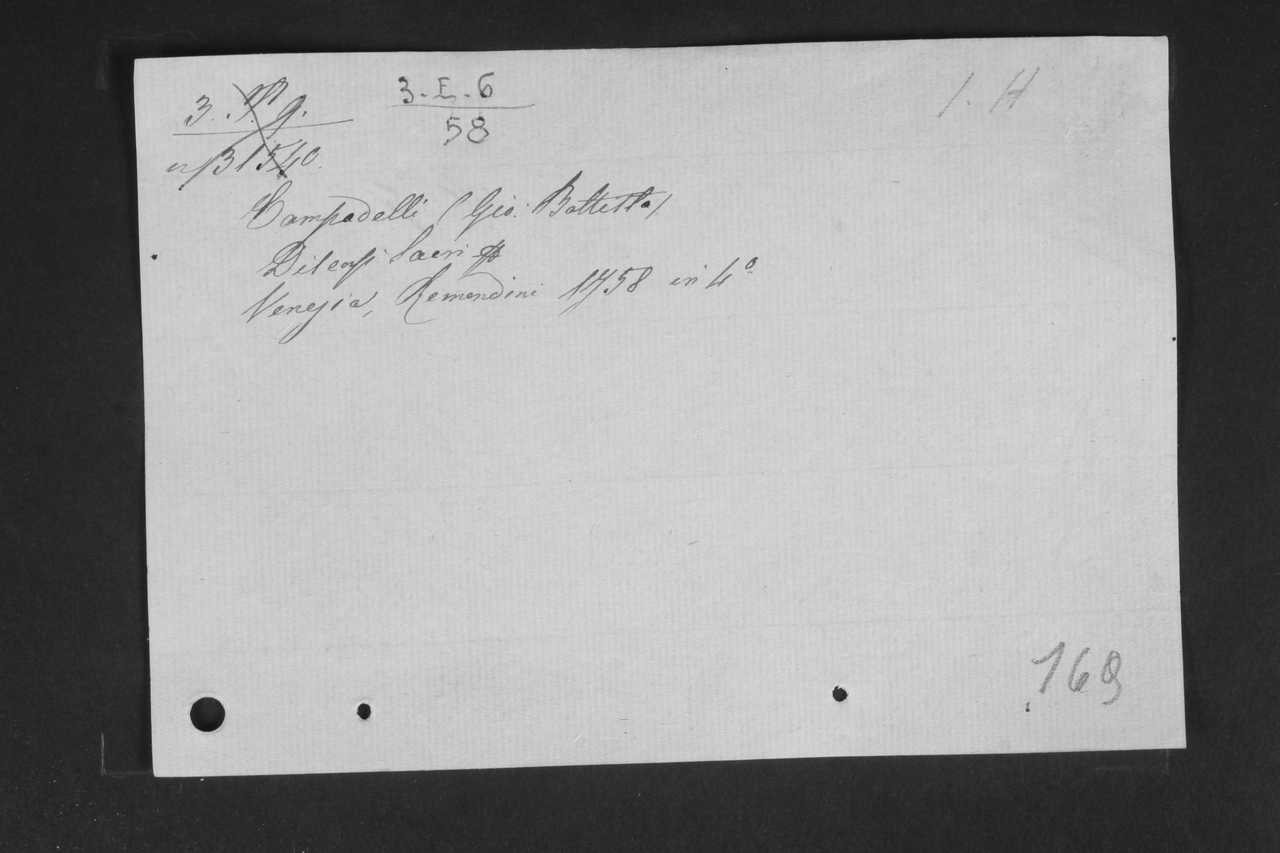 3. 9.
3-E-6
58
1. H
31540.
Campadelli (Gio: Battista)
Discorsi Sacri
Venezia, Remondini 1758 in 4º
169